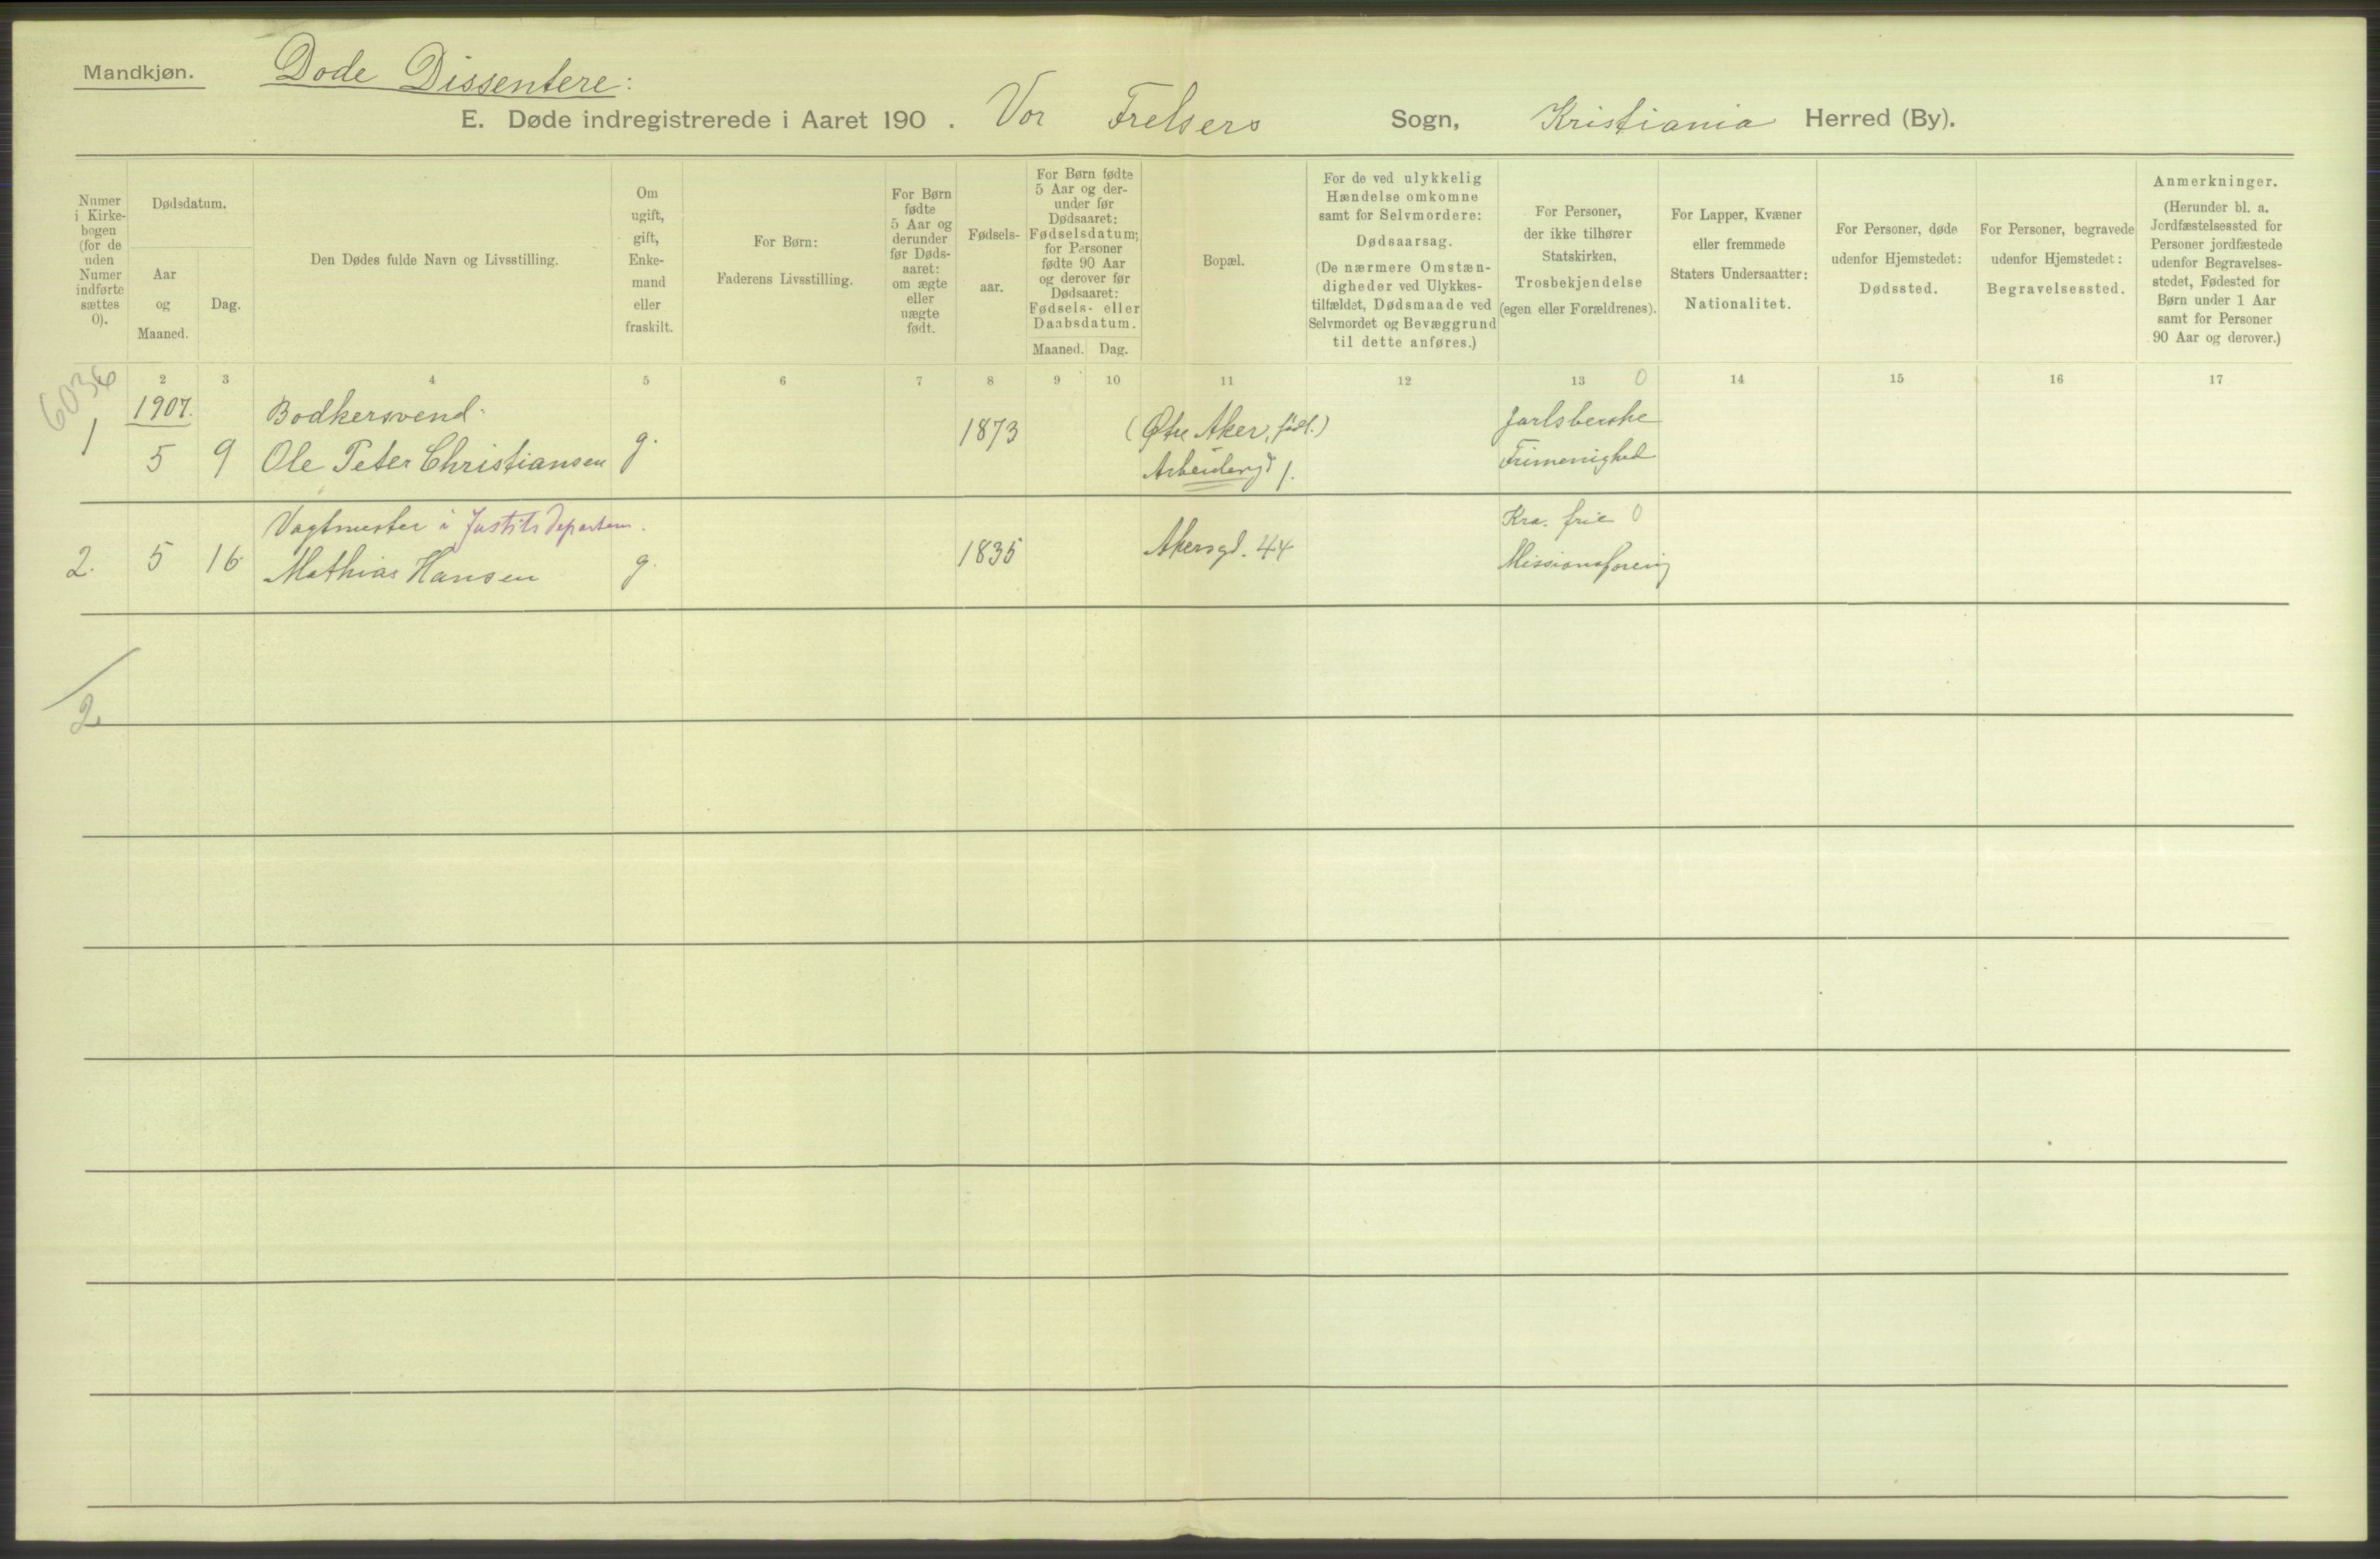 Mandkjøn.
Døde Dissentere:
E. Døde indregistrerede i Aaret 190 . Vor Frelsers Sogn, Kristiania Herred (By).
Numer
i Kirke-
bogen
(for de
uden
Numer
indførte
sættes
0).
Dødsdatum.
Aar
og
Maaned.
Dag.
Den Dødes fulde Navn og Livsstilling.
Om
ugift,
gift,
Enke-
mand
eller
fraskilt.
For Børn:
Faderens Livsstilling.
For Børn
fødte
5 Aar og
derunder
før Døds-
aaret:
om ægte
eller
uægte
født.
Fødsels-
aar.
For Børn fødte
5 Aar og der-
under før
Dødsaaret:
Fødselsdatum;
for Personer
fødte 90 Aar
og derover før
Dødsaaret:
Fødsels- eller
Daabsdatum.
Maaned. Dag.
Bopæl.
For de ved ulykkelig
Hændelse omkomne
samt for Selvmordere:
Dødsaarsag.
(De nærmere Omstæn-
digheder ved Ulykkes-
tilfældet, Dødsmaade ved
Selvmordet og Bevæggrund
til dette anføres.)
For Personer,
der ikke tilhører
Statskirken,
Trosbekjendelse
(egen eller Forældrenes).
For Lapper, Kvæner
eller fremmede
Staters Undersaatter:
Nationalitet.
For Personer, døde
udenfor Hjemstedet:
Dødssted.
For Personer, begravede
udenfor Hjemstedet:
Begravelsessted.
Anmerkninger.
(Herunder bl. a.
Jordfæstelsessted for
Personer jordfæstede
udenfor Begravelses-
stedet, Fødested for
Børn under 1 Aar
samt for Personer
90 Aar og derover.)
2 3 4 5 6 7 8 9 10 11 12 13 0 14 15 16 17
1907. Bødkersvend
1 5 9 Ole Peter Christiansen g. 1873 (Østre Aker, født.) Jarlsbergske
Arbeidergd 1. Frimenighed
Vagtmester i Justits Departem. Kra. frie 0
2. 5 16 Mathias Hansen g. 1835 Akersgd. 44 Missionsforening
2